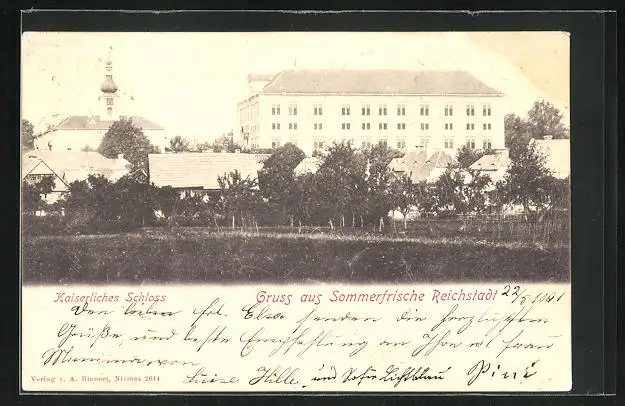 Kaiserliches Schloss
Gruss aus Sommerfrische Reichstadt 22/5 1901
Den lieben Frl. Elsa senden die herzlichsten
Grüße, und beste Empfehlung an Ihre
Mamma von
Luise Hille, und Sofie Lichtblau
Verlag v. A. Bienert, Niemes 2614